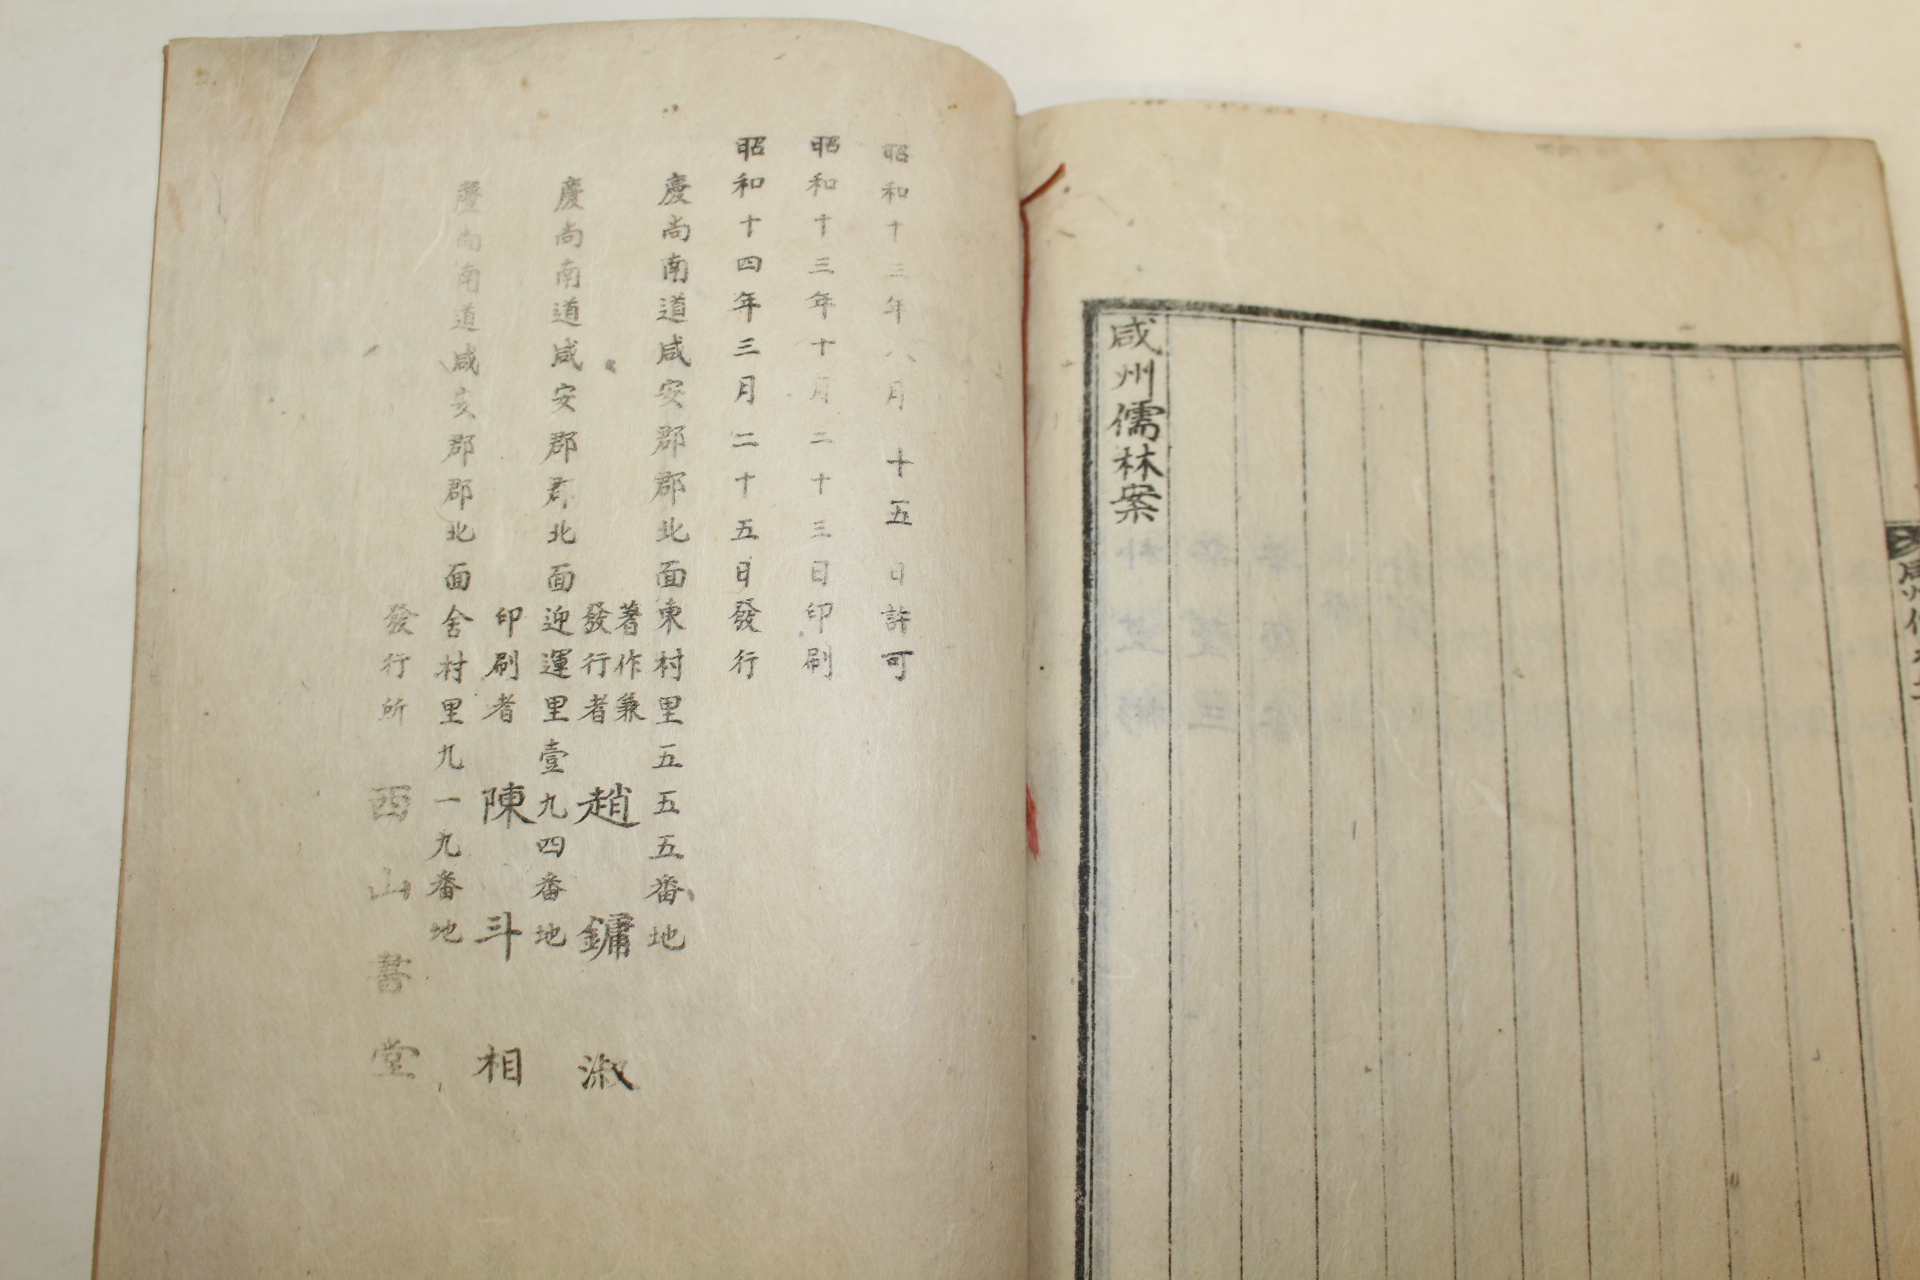 咸州儒林案
昭和十三年八月十五日許可
昭和十三年十月二十三日印刷
昭和十四年三月二十五日發行
慶尚南道咸安郡郡北面東村里五五五番地
著作兼
發行者 趙鏞淑
慶尚南道咸安郡郡北面迎運里壹九四番地
印刷者 陳斗相
慶尚南道咸安郡郡北面舍村里九一九番地
發行所 西山書堂